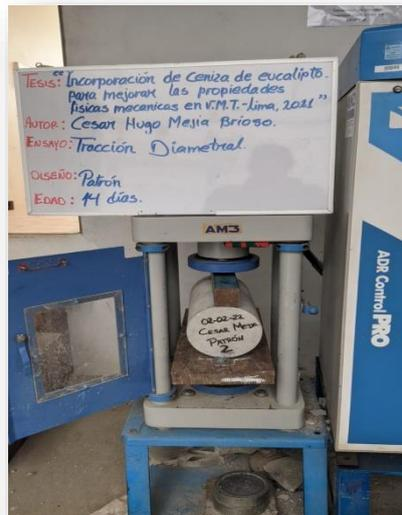 TESIS: "Incorporación de Ceniza de eucalipto
para mejorar las propiedades
fisicas mecanicas en V.M.T.-Lima, 2021"
AUTOR: Cesar Hugo Mejia Brioso.
ENSAYO: Tracción Diametral.
DISEÑO: Patrón
EDAD: 14 días.
AM3
02-02-22
CESAR MEJIA
PATRÓN
2
ADR ControlPRO